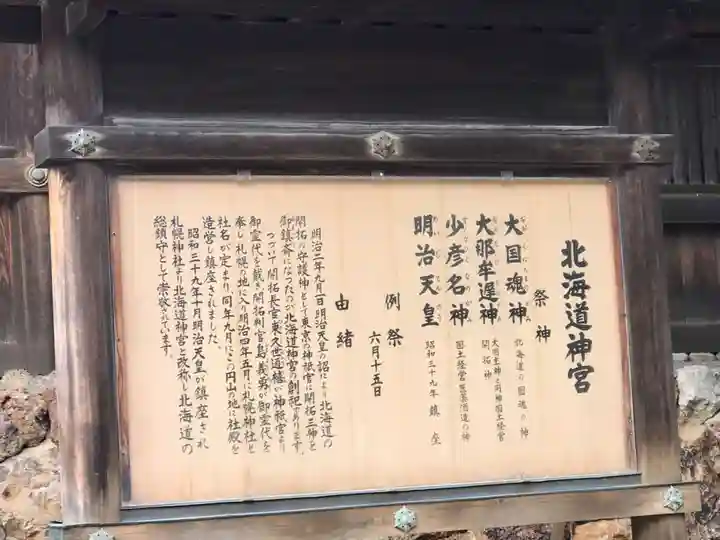 北海道神宮
祭神
大国魂神
北海道の国魂の神
大那牟遅神
大国主神と同神国土経営
開拓神
少彦名神
国土経営医薬酒造の神
明治天皇
昭和三十九年鎮座
例祭
六月十五日
由緒
明治二年九月一日明治天皇の詔により北海道の
開拓の守護神として東京の神祇官に開拓三神を
御鎮斎になったのが北海道神宮の創祀であります。
つづいて開拓長官東久世通禧が神祇官より
御霊代を戴き開拓判官島義勇が御霊代を
奉じ札幌の地に入り明治四年五月に札幌神社と
社名が定まり、同年九月にこの円山の地に社殿を
造営し鎮座されました。
昭和三十九年十月明治天皇が鎮座され
札幌神社より北海道神宮と改称し北海道の
総鎮守として崇敬されています。